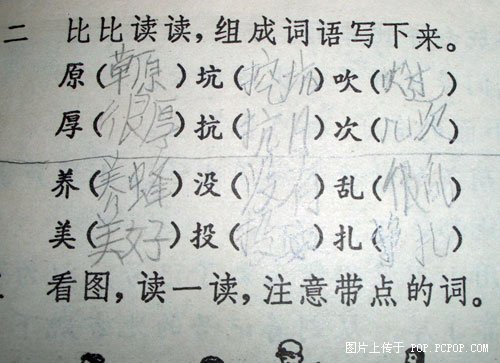 二 比比读读，组成词语写下来。
原（草原）坑（挖坑）吹（吹过）
厚（很厚）抗（抗月）次（几次）
养（养蜂）没（没有）乱（很乱）
美（美好）投（）扎（扎）
看图，读一读，注意带点的词。
图片上传于 POP.PCPOP.COM